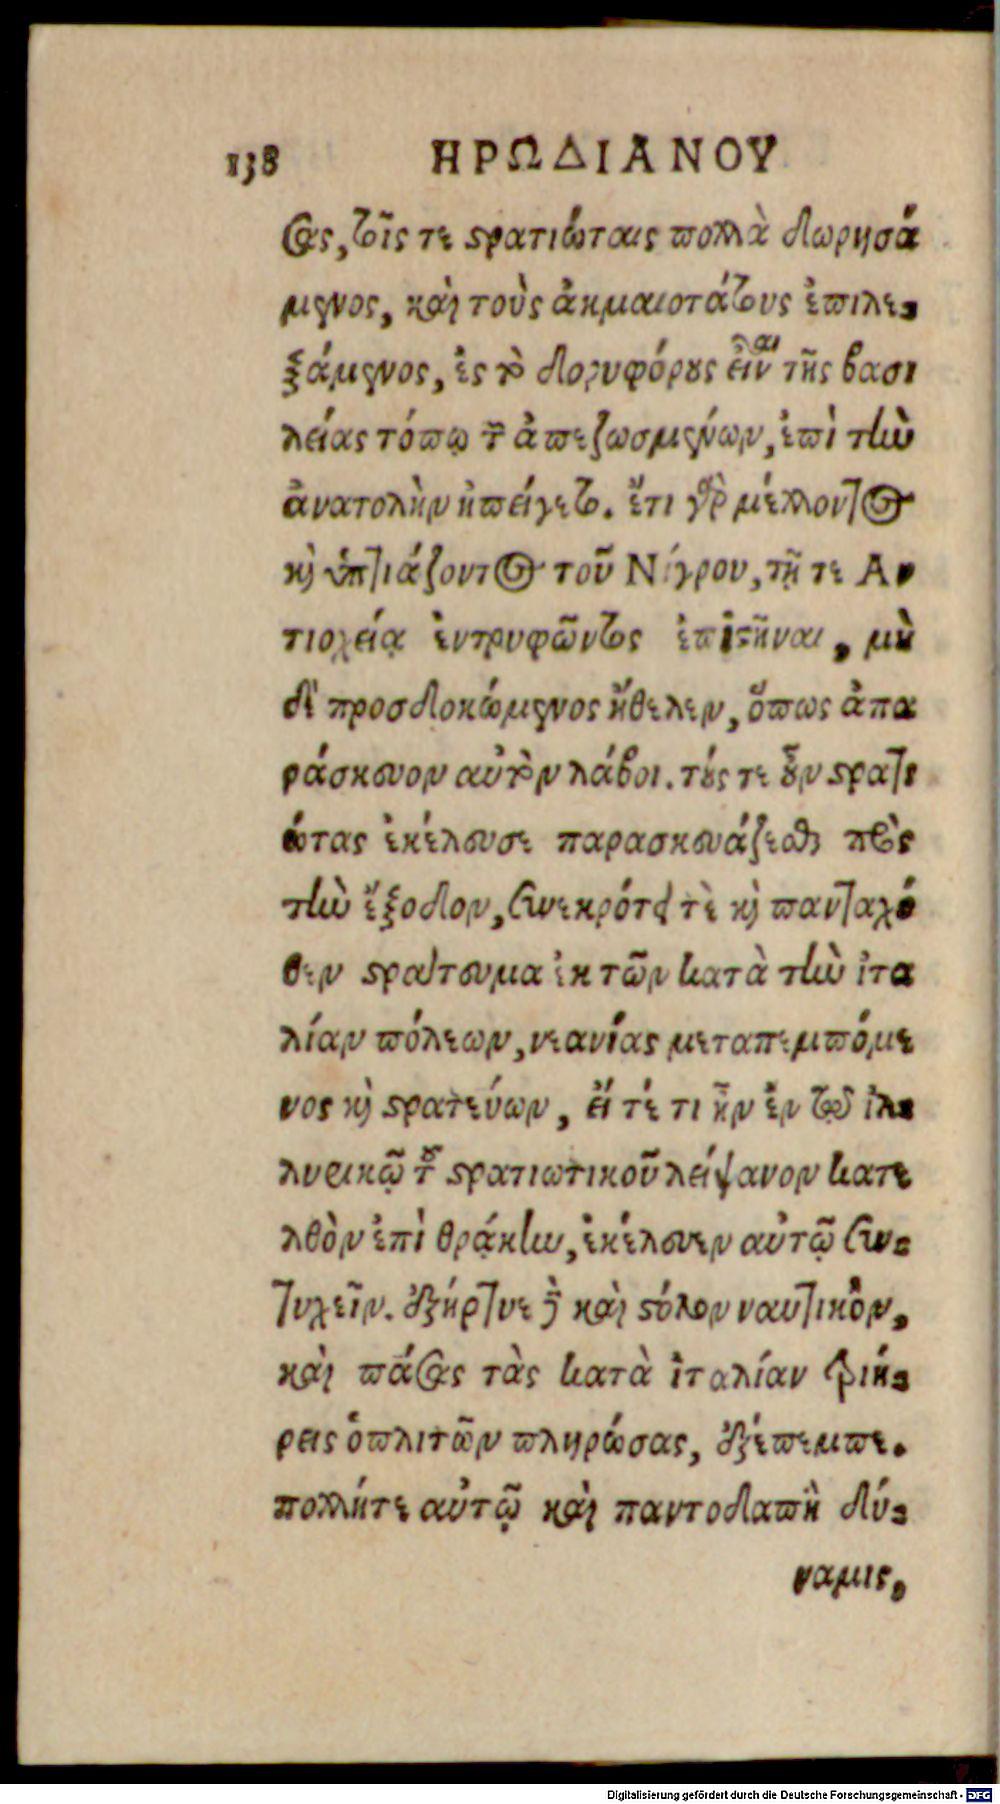 138 ΗΡΩΔΙΑΝΟΥ
σας, τοῖς τε στρατιώταις πολλὰ δωρησά
μενος, καὶ τοὺς ἀκμαιοτάτους ἐπιλε-
ξάμενος, ἐς τὸ δορυφόρους εἶναι τῆς βασι
λείας τόπῳ τῶν ἀπεζωσμένων, ἐπὶ τὴν
ἀνατολὴν ἠπείγετο. ἔτι γὰρ μέλλοντος
καὶ ὑπτιάζοντος τοῦ Νίγρου, τῇ τε Αν
τιοχείᾳ ἐντρυφῶντος ἐπιστῆναι, μὴ
δὲ προσδοκώμενος ἤθελεν, ὅπως ἀπα
ράσκευον αὐτὸν λάβοι. τούς τε οὖν στρατι
ώτας ἐκέλευσε παρασκευάζεσθαι πρὸς
τὴν ἔξοδον, συνεκρότει τὲ καὶ πανταχό
θεν στράτευμα ἐκ τῶν κατὰ τὴν ἰτα
λίαν πόλεων, νεανίας μεταπεμπόμε
νος καὶ στρατεύων, εἴ τέ τι ἦν ἐν τῷ ἰλ-
λυρικῷ τοῦ στρατιωτικοῦ λείψανον κατε
λθὸν ἐπὶ θρᾴκην, ἐκέλευεν αὐτῷ συν-
τυχεῖν. ἐξήρτυε δὲ καὶ στόλον ναυτικὸν,
καὶ πάσας τὰς κατὰ ἰταλίαν τριή-
ρεις ὁπλιτῶν πληρώσας, ἐξέπεμπε.
πολλήτε αὐτῷ καὶ παντοδαπὴ δύ-
ναμις,
Digitalisierung gefördert durch die Deutsche Forschungsgemeinschaft - DFG